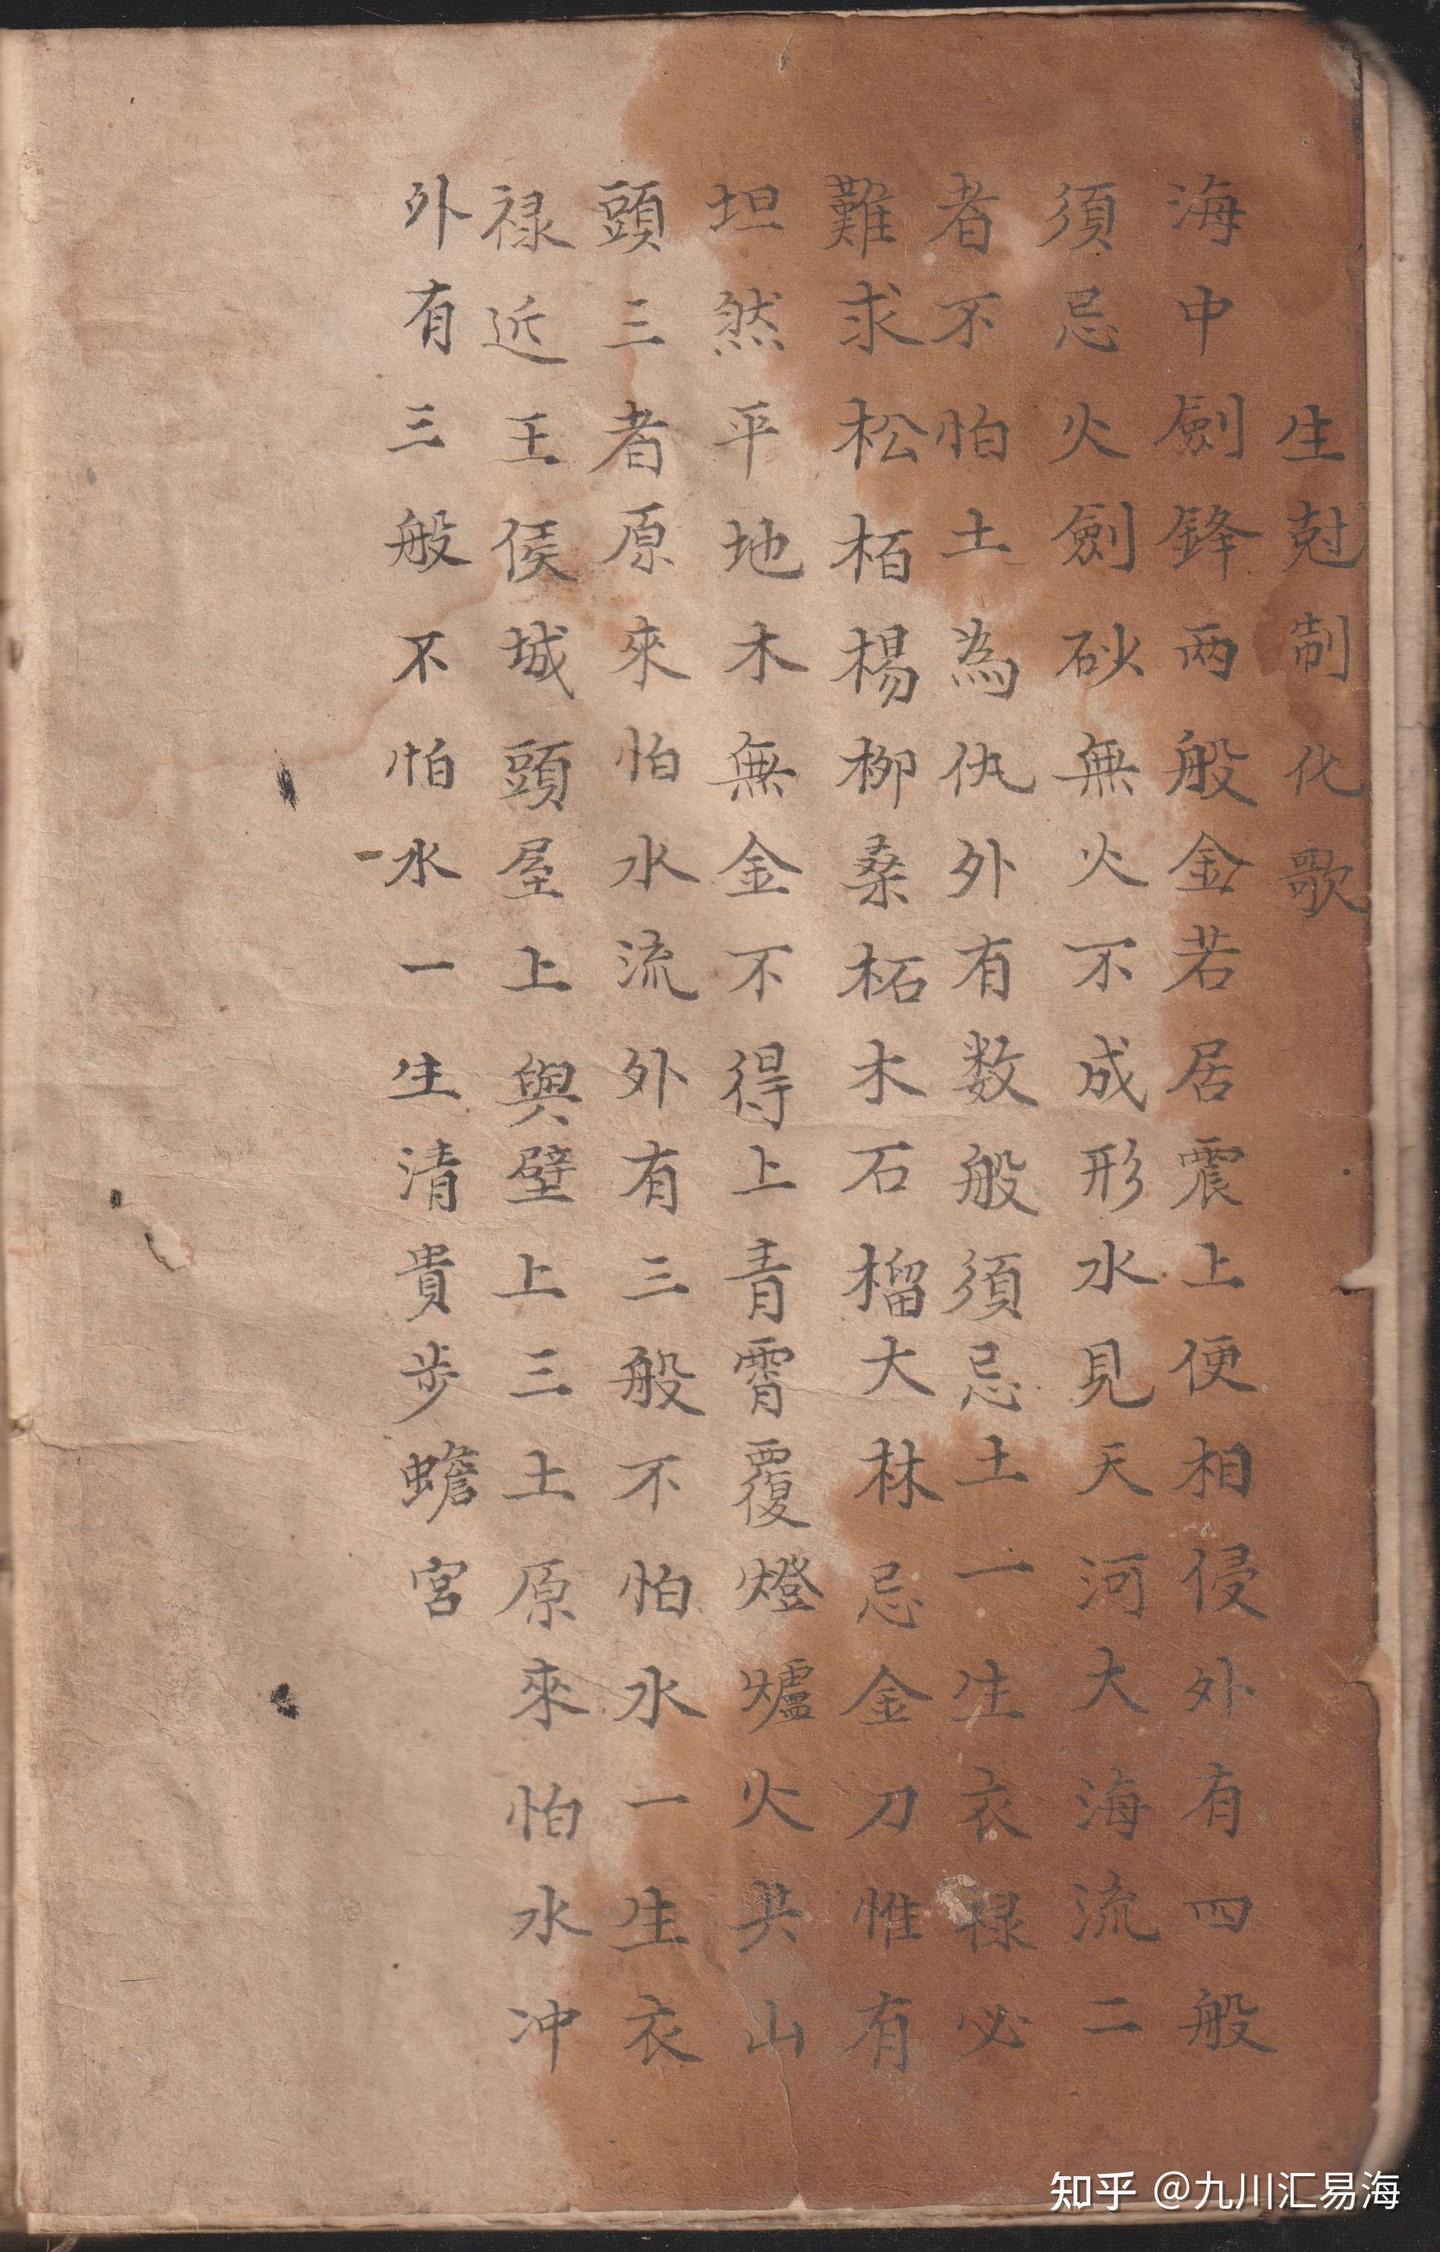 生尅制化歌
海中劍鋒两般金若居震上便相侵外有四般
須忌火劍砂無火不成形水見天河大海流二
者不怕土為仇外有数般須忌土一生衣禄必
難求松栢楊柳桑柘木石榴大林忌金刀惟有
坦然平地木無金不得上青霄覆燈爐火共山
頭三者原來怕水流外有三般不怕水一生衣
禄近王侯城頭屋上與壁上三土原來怕水冲
外有三般不怕水一生清貴步蟾宮
知乎 @九川汇易海